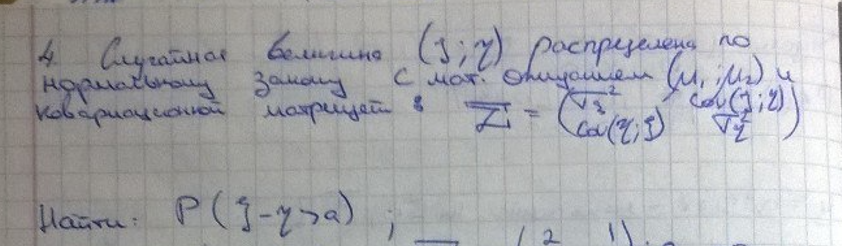 4 Случайная величина (ξ; η) распределена по
нормальному закону с мат. ожиданием (μ₁; μ₂) и
ковариационной матрицей: Σ = (σ_ξ² cov(ξ; η)
cov(η; ξ) σ_η²)
Найти: P(ξ-η>a);